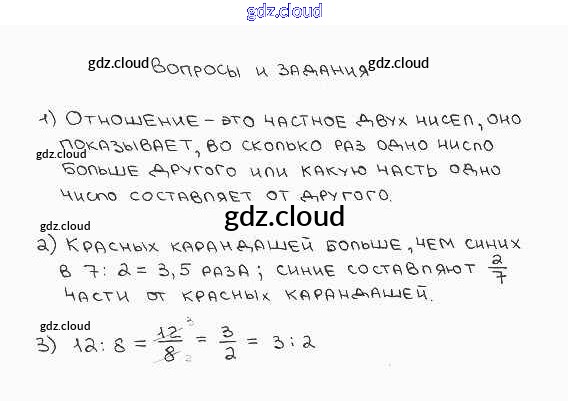 gdz.cloud
gdz.cloud ВОПРОСЫ И ЗАДАНИЯ gdz.cloud
1) ОТНОШЕНИЕ – ЭТО ЧАСТНОЕ ДВУХ ЧИСЕЛ, ОНО
ПОКАЗЫВАЕТ, ВО СКОЛЬКО РАЗ ОДНО ЧИСЛО
gdz.cloud
БОЛЬШЕ ДРУГОГО ИЛИ КАКУЮ ЧАСТЬ ОДНО
ЧИСЛО СОСТАВЛЯЕТ ОТ ДРУГОГО.
gdz.cloud
gdz.cloud
2) КРАСНЫХ КАРАНДАШЕЙ БОЛЬШЕ, ЧЕМ СИНИХ
В 7 : 2 = 3,5 РАЗА ; СИНИЕ СОСТАВЛЯЮТ 2/7
ЧАСТИ ОТ КРАСНЫХ КАРАНДАШЕЙ.
gdz.cloud
3) 12 : 8 = 12 3/8 2 = 3/2 = 3 : 2